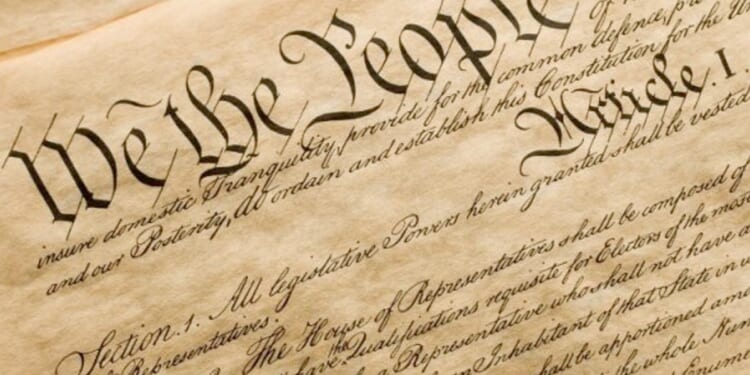 We the People
insure domestic Tranquility, provide for the common defence,
and our Posterity, do ordain and establish this Constitution for the
Article. I.
Section. 1. All legislative Powers herein granted shall be vested
Representatives.
The House of Representatives shall be composed of
have the Qualifications requisite for Electors of the most
a Representative who shall not have a
Inhabitant of that State in
be apportioned
the whole